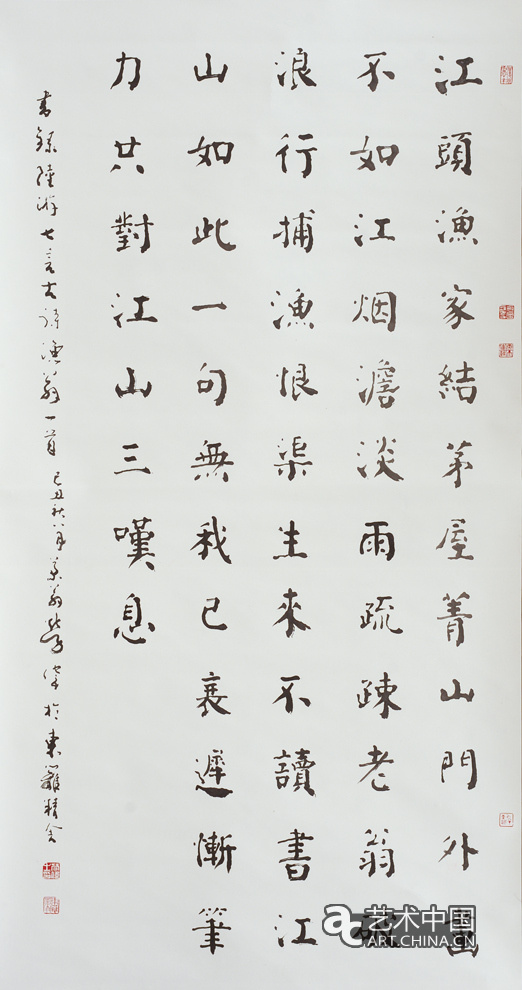 江頭漁家結茅屋菁山門外畫
不如江烟澹淡雨疏疎老翁破
浪行捕漁恨渠生來不讀書江
山如此一句無我已衰遲慚筆
力共對江山三嘆息
書錄陸游七言古詩漁翁一首 己丑秋八月 翁 於東籬精舍
艺术中国
ART.CHINA.CN